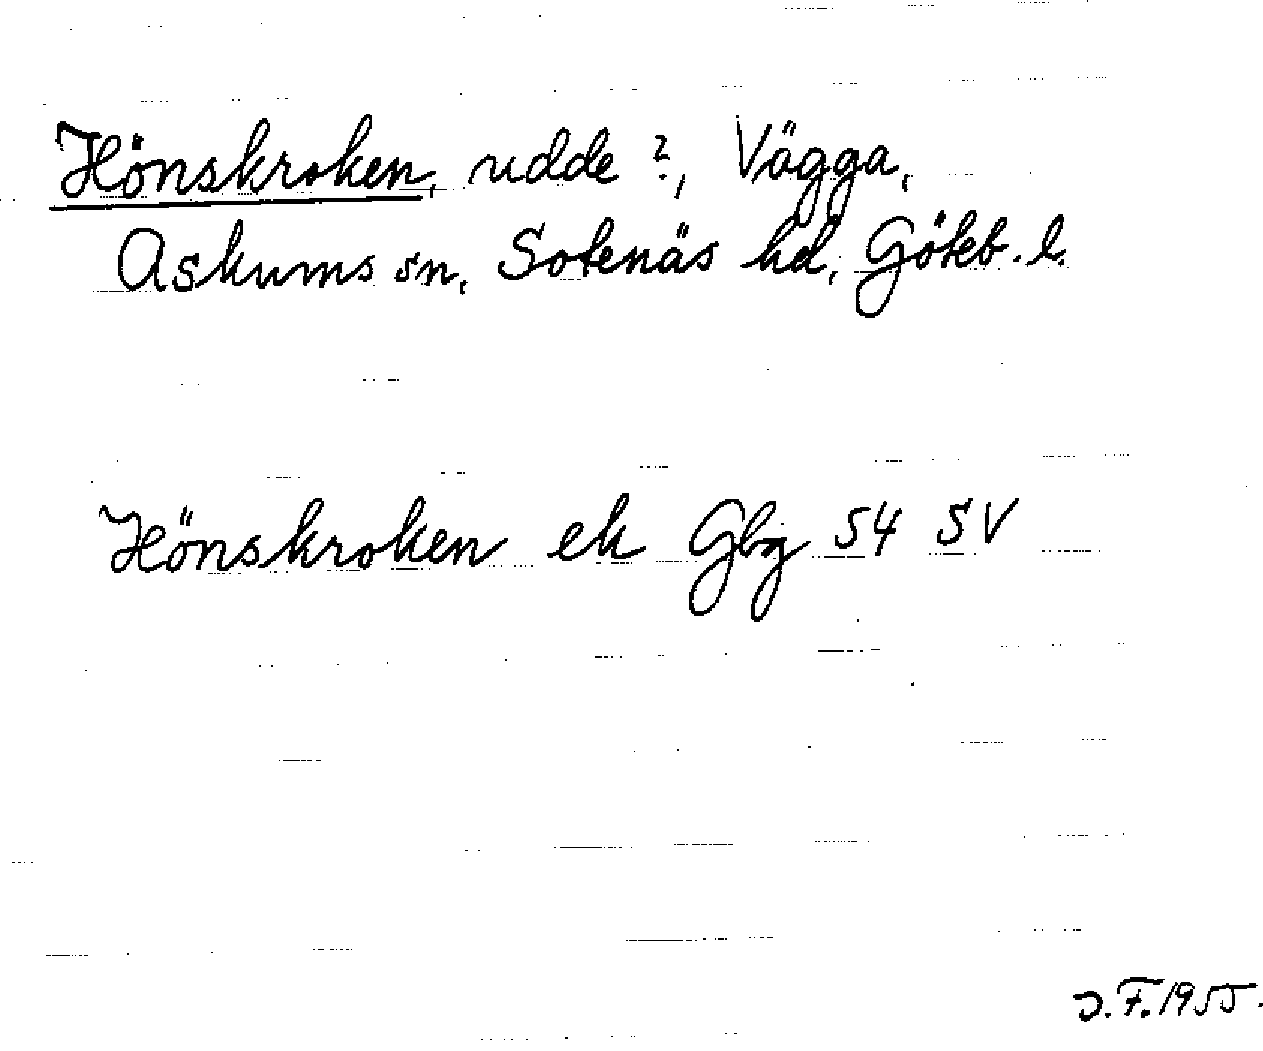 Hönskroken, udde ?, Vägga,
Askums sn, Sotenäs hd, Göteb. l.
Hönskroken ek Gbg 54 SV
J. F. 1955.